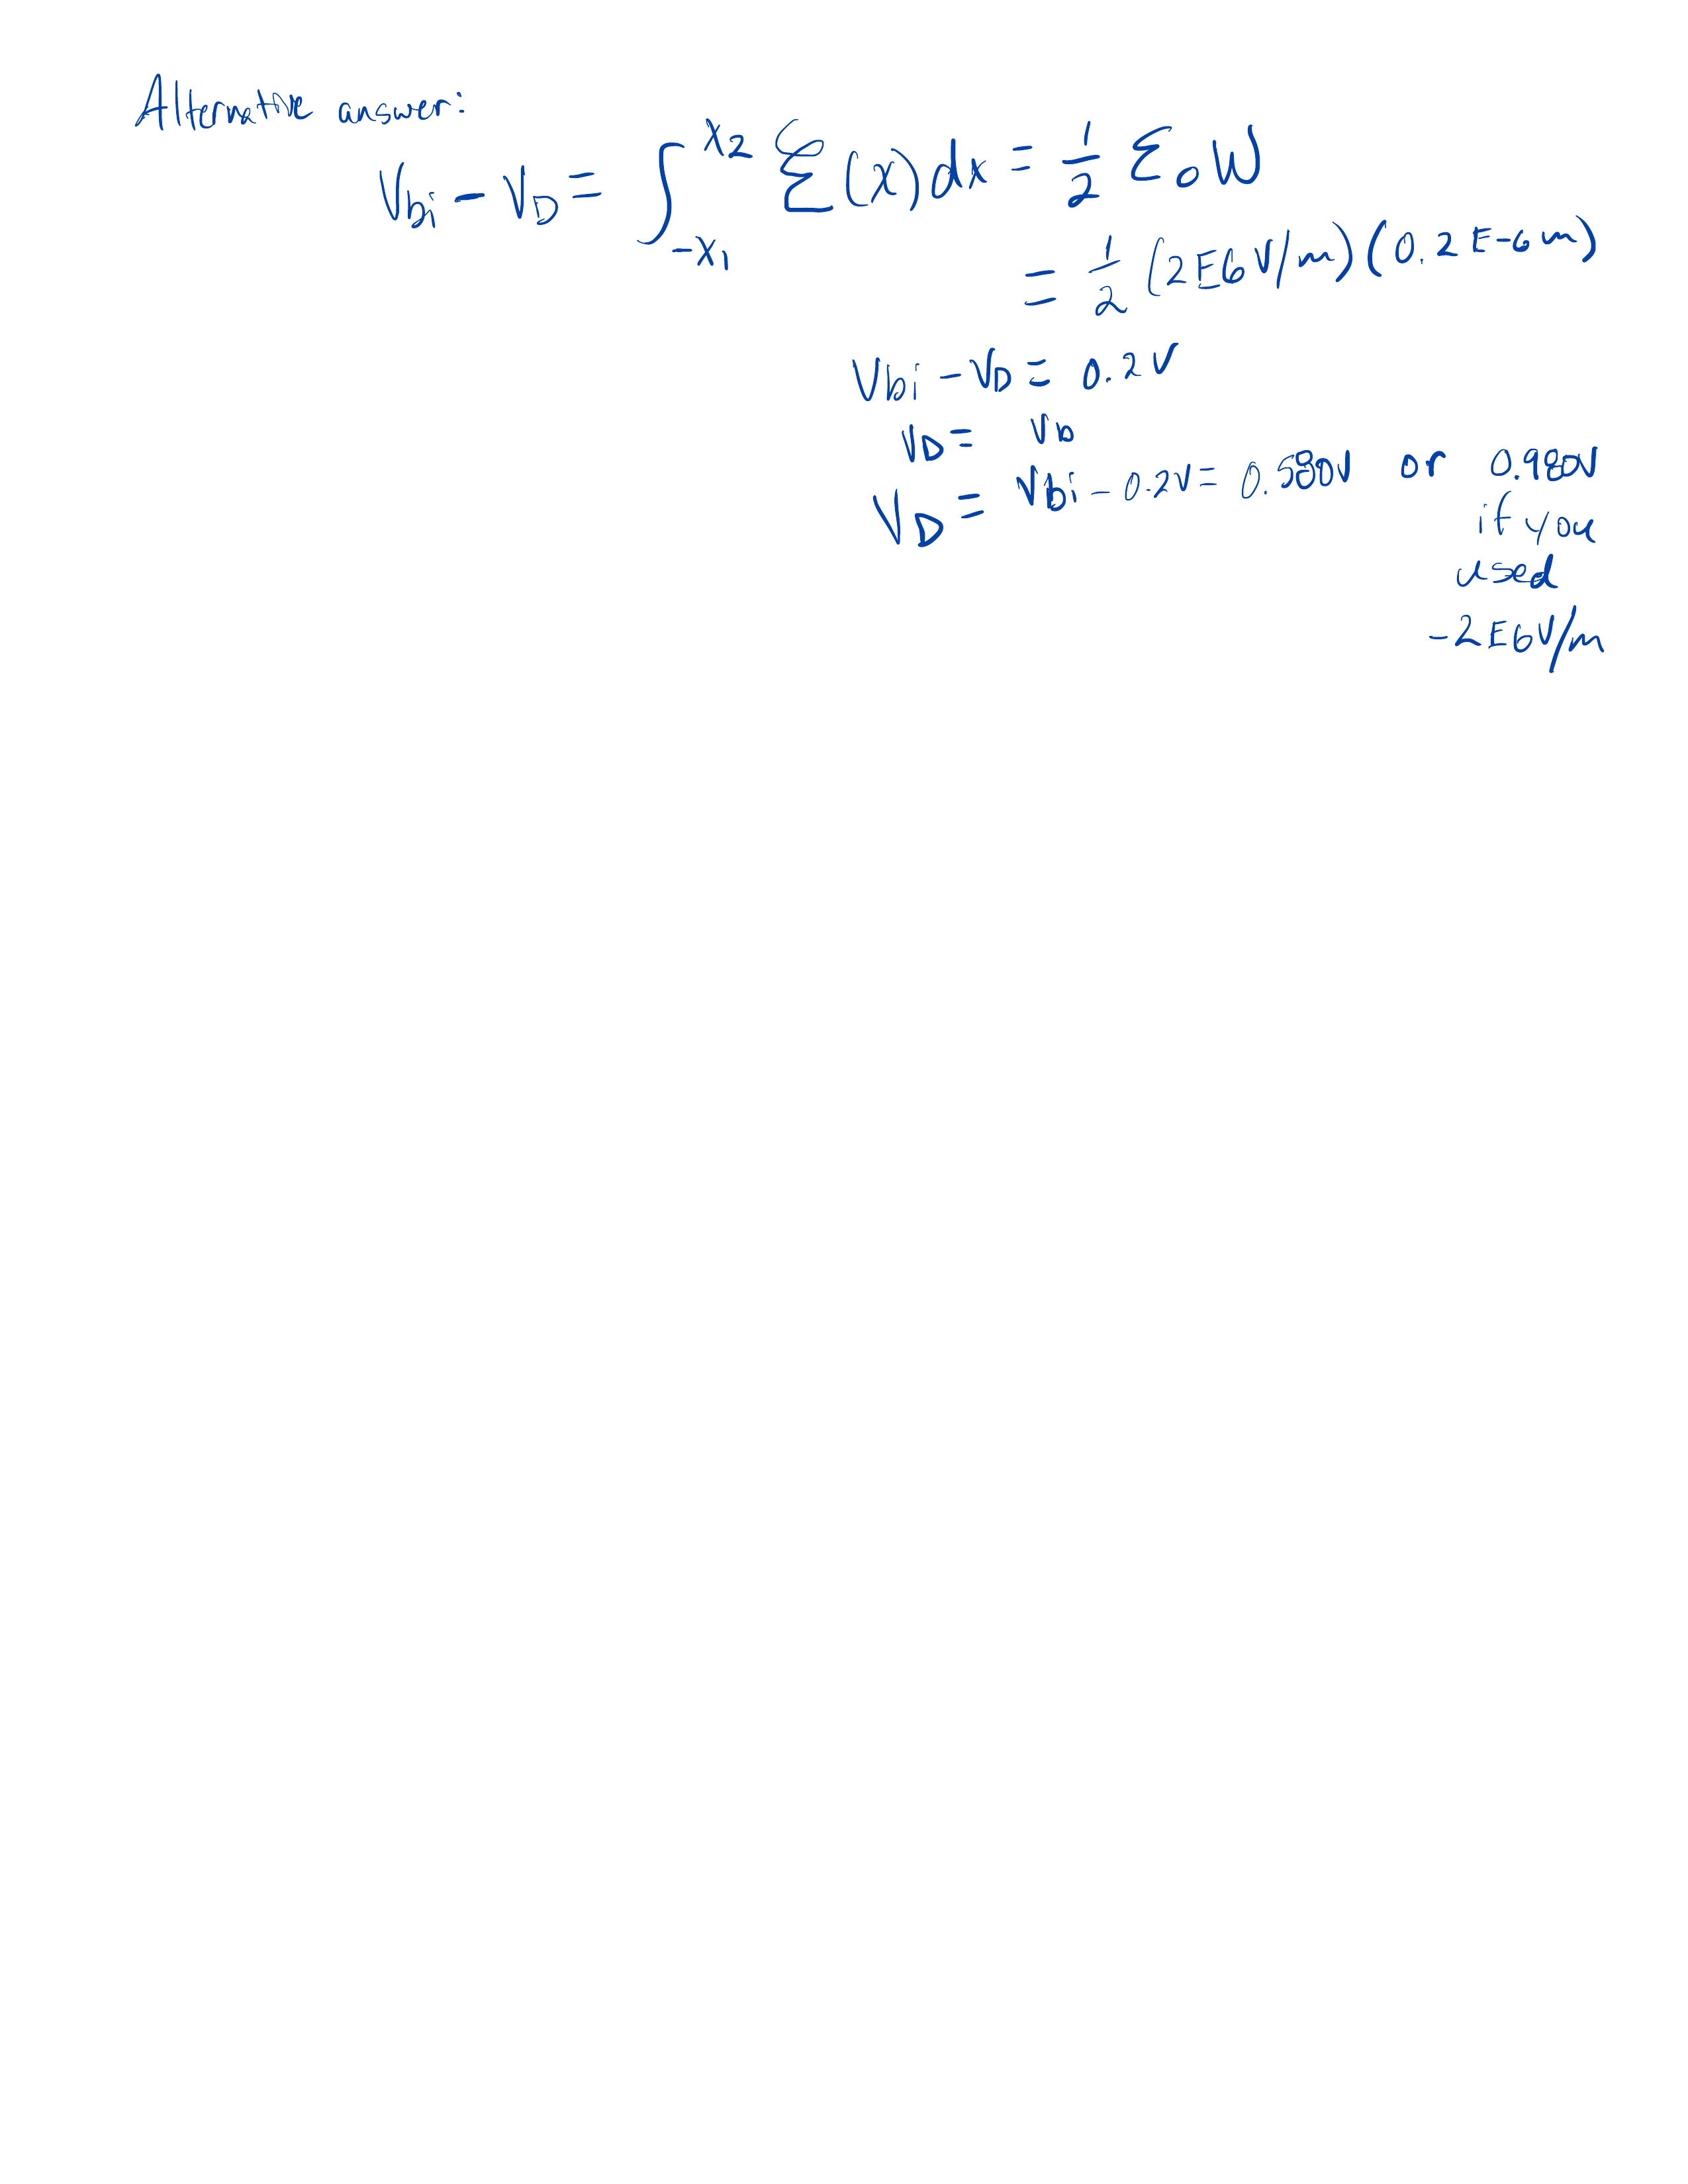 Alternative answer:
Vbi - VD = ∫_{-x1}^{x2} ℰ(x) dx = 1/2 ℰ0 W
= 1/2 (2E6 V/m)(0.2E-6 m)
Vbi - VD = 0.2V
VD = Vb
VD = Vbi - 0.2V = 0.580V or 0.980V
if you
used
-2E6V/m